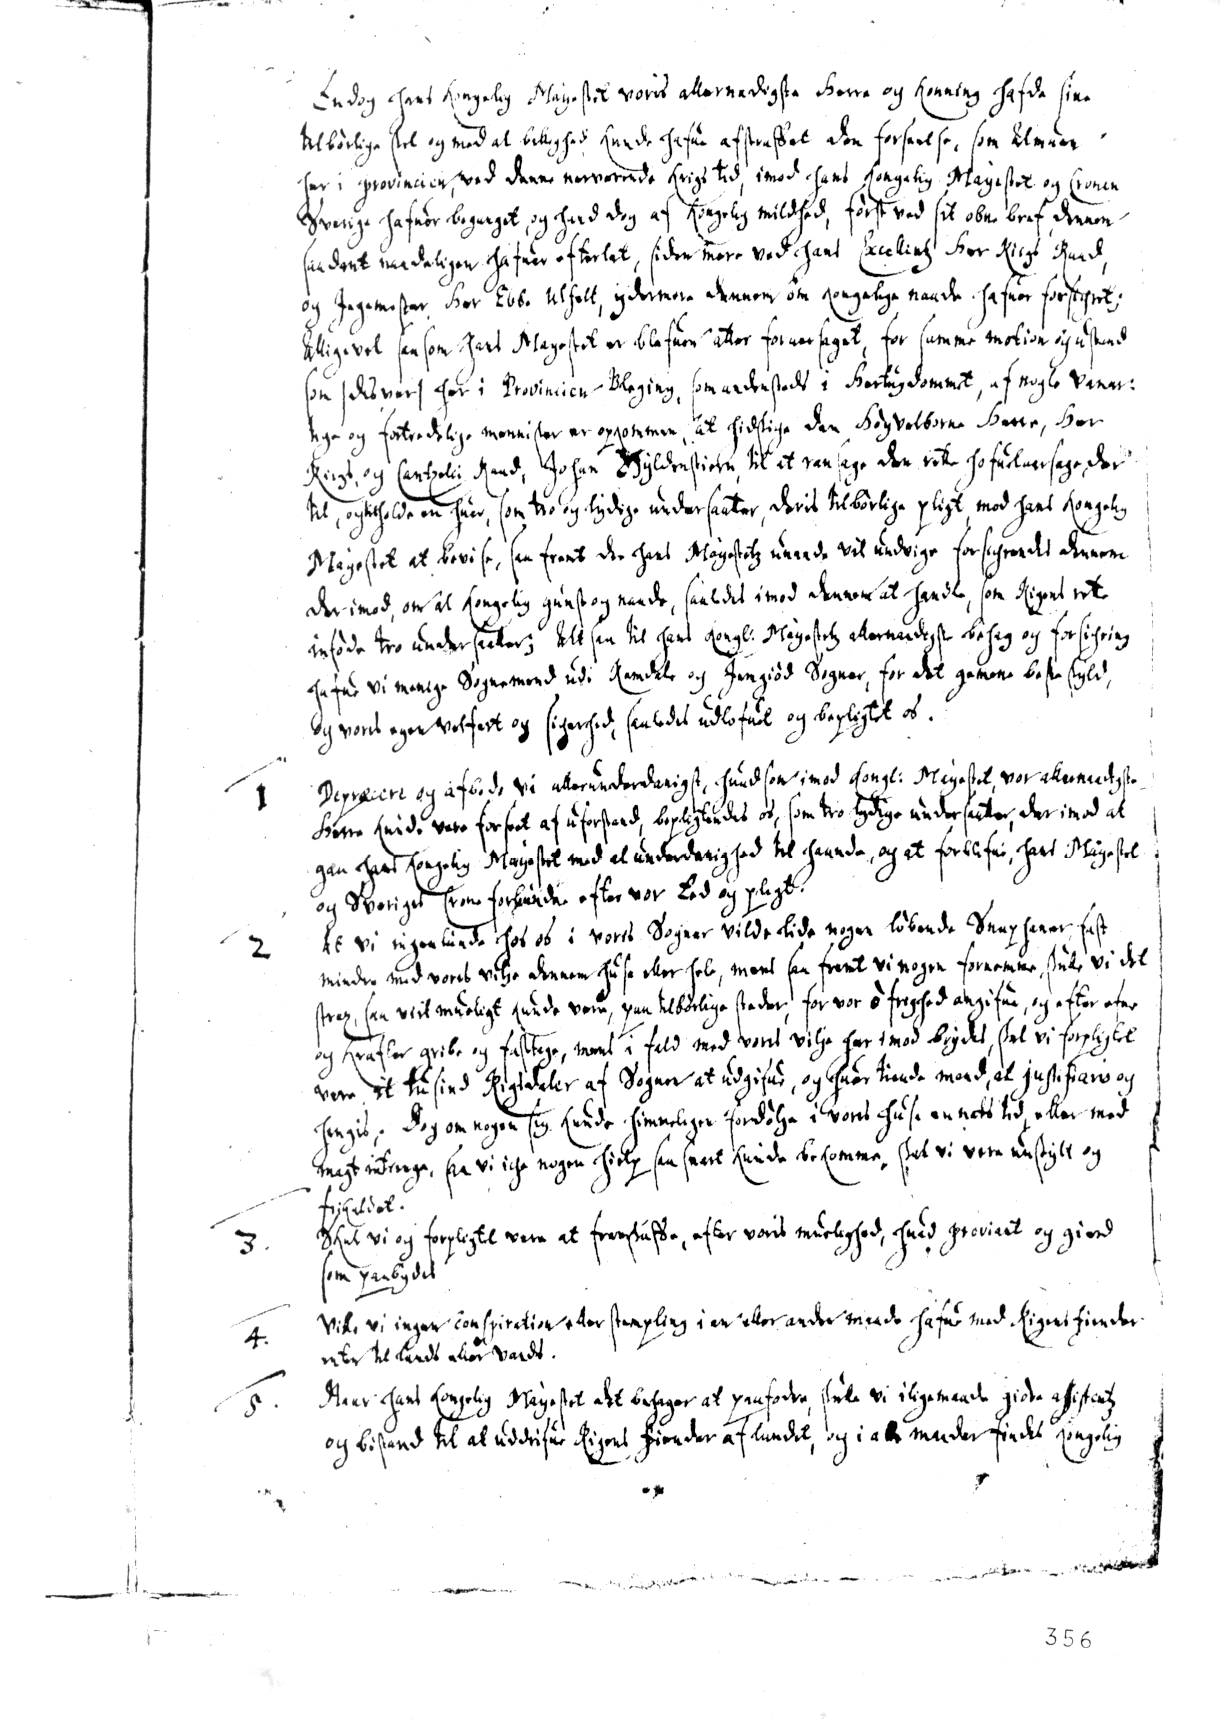 Endog hans Kongelig Mayestet voris allernadigste Herre og Konning hafde sine
tilbörlige skel og med al billighed kunde hafue afstraffet den forseelse, som Almuen
her i provincien, ved denne nerverende krigs tid, imod hans Kongelig Mayestet og Cronen
Sverige hafuer begaaget, og hand dog af Kongelig mildhed, först ved sit obne bref, dennem
saadant naadeligen hafuer efterlat, siden mere ved hans Excellentz Her Rigs Raad,
og Jegemester Her Ebbe Ulfelt, ydermere dennem om Kongelige naade hafuer forsichret;
Alligevel saasom hans Mayestet er blefuen atter foruarsaget, for samme motion og ustand
som /: desver :/ her i Provincien Bleging, som andensteds i Hertugdommet, af nogle vanar:
tige og fortredelige mennisker er opkommen, at hidskige den Höyvelborne Herre, Her
Rigs, og Cantzelii Raad, Johan Gyldenstiern, til at ransage den rette hofuetaarsage der
til, og tilholde en huer, som tro og lydige undersaater, deris tilbörlige pligt mod hans Kongelig
Mayestet at bevise, saa fremt de hans Mayestetz unaade vil undvige forsichrendis dennem
der imod, om al Kongelig gunst og naade, saaledes imod dennem at handle, som Rigens rette
inföde tro undersaater; Alt saa til hans Kongl: Mayestetz allernaadigste behag og forsichring
hafue vi menige Sognemend udi Ramdale og Jemgiöd Sogner, for det gemene beste skyld,
og voris egen velfert og sicherhed, saaledes udlofuet og bepligtet os.
1 Deprecere og afbede vi allerunderdanigst, huad som imod Kongl: Mayestet, vor allernaadigste
Herre kunde vere forseet af uforstand, bepligtendes os, som tro lydige undersaater, der imod at
gaa hans Kongelig Mayestet med al underdanighed til haande, og at forblifue, hans Mayestet
og Sveriges Crone forbundne efter vor Eed og pligt.
2 At vi ingenlunde hos os i voris Sogner vilde lide nogen löbende Snaphaner, fast
mindre med voris vilje dennem huse eller hele, mens saa fremt vi nogen fornemme, skulle vi det
strax, saa vit mueligt kunde vere, paa tilbörlige steder, for vor öfrighed angifue, og efter efne
og krafter gribe og fasttage, mens i fald med voris vilje her imod brydes, skal vi forpligtet
vere it tusind Rigsdaler af Sognen at udgifue, og huer tiende mand, at justificeris og
hengis. Dog om nogen sig kunde himmeligen fordölge i voris huse en nats tid, eller med
magt intrenge, saa vi iche nogen hielp saa snart kunde bekomme, skal vi vere unskylt og
frikaldet.
3. Skal vi og forpligtet vere at fremskaffe, efter voris muelighed, huad proviant og gierd
som paabydes
4. Ville vi ingen Conspiration eller stempling i en eller anden maade hafue med Rigens fiender
enten til lands eller vands.
5. Naar hans Kongelig Mayestet det behager at paafodre, skulle vi iligemaade giöre assistentz
og bistand til at uddrifue Rigens fiender af landet, og i alle maader findes Kongelig
356